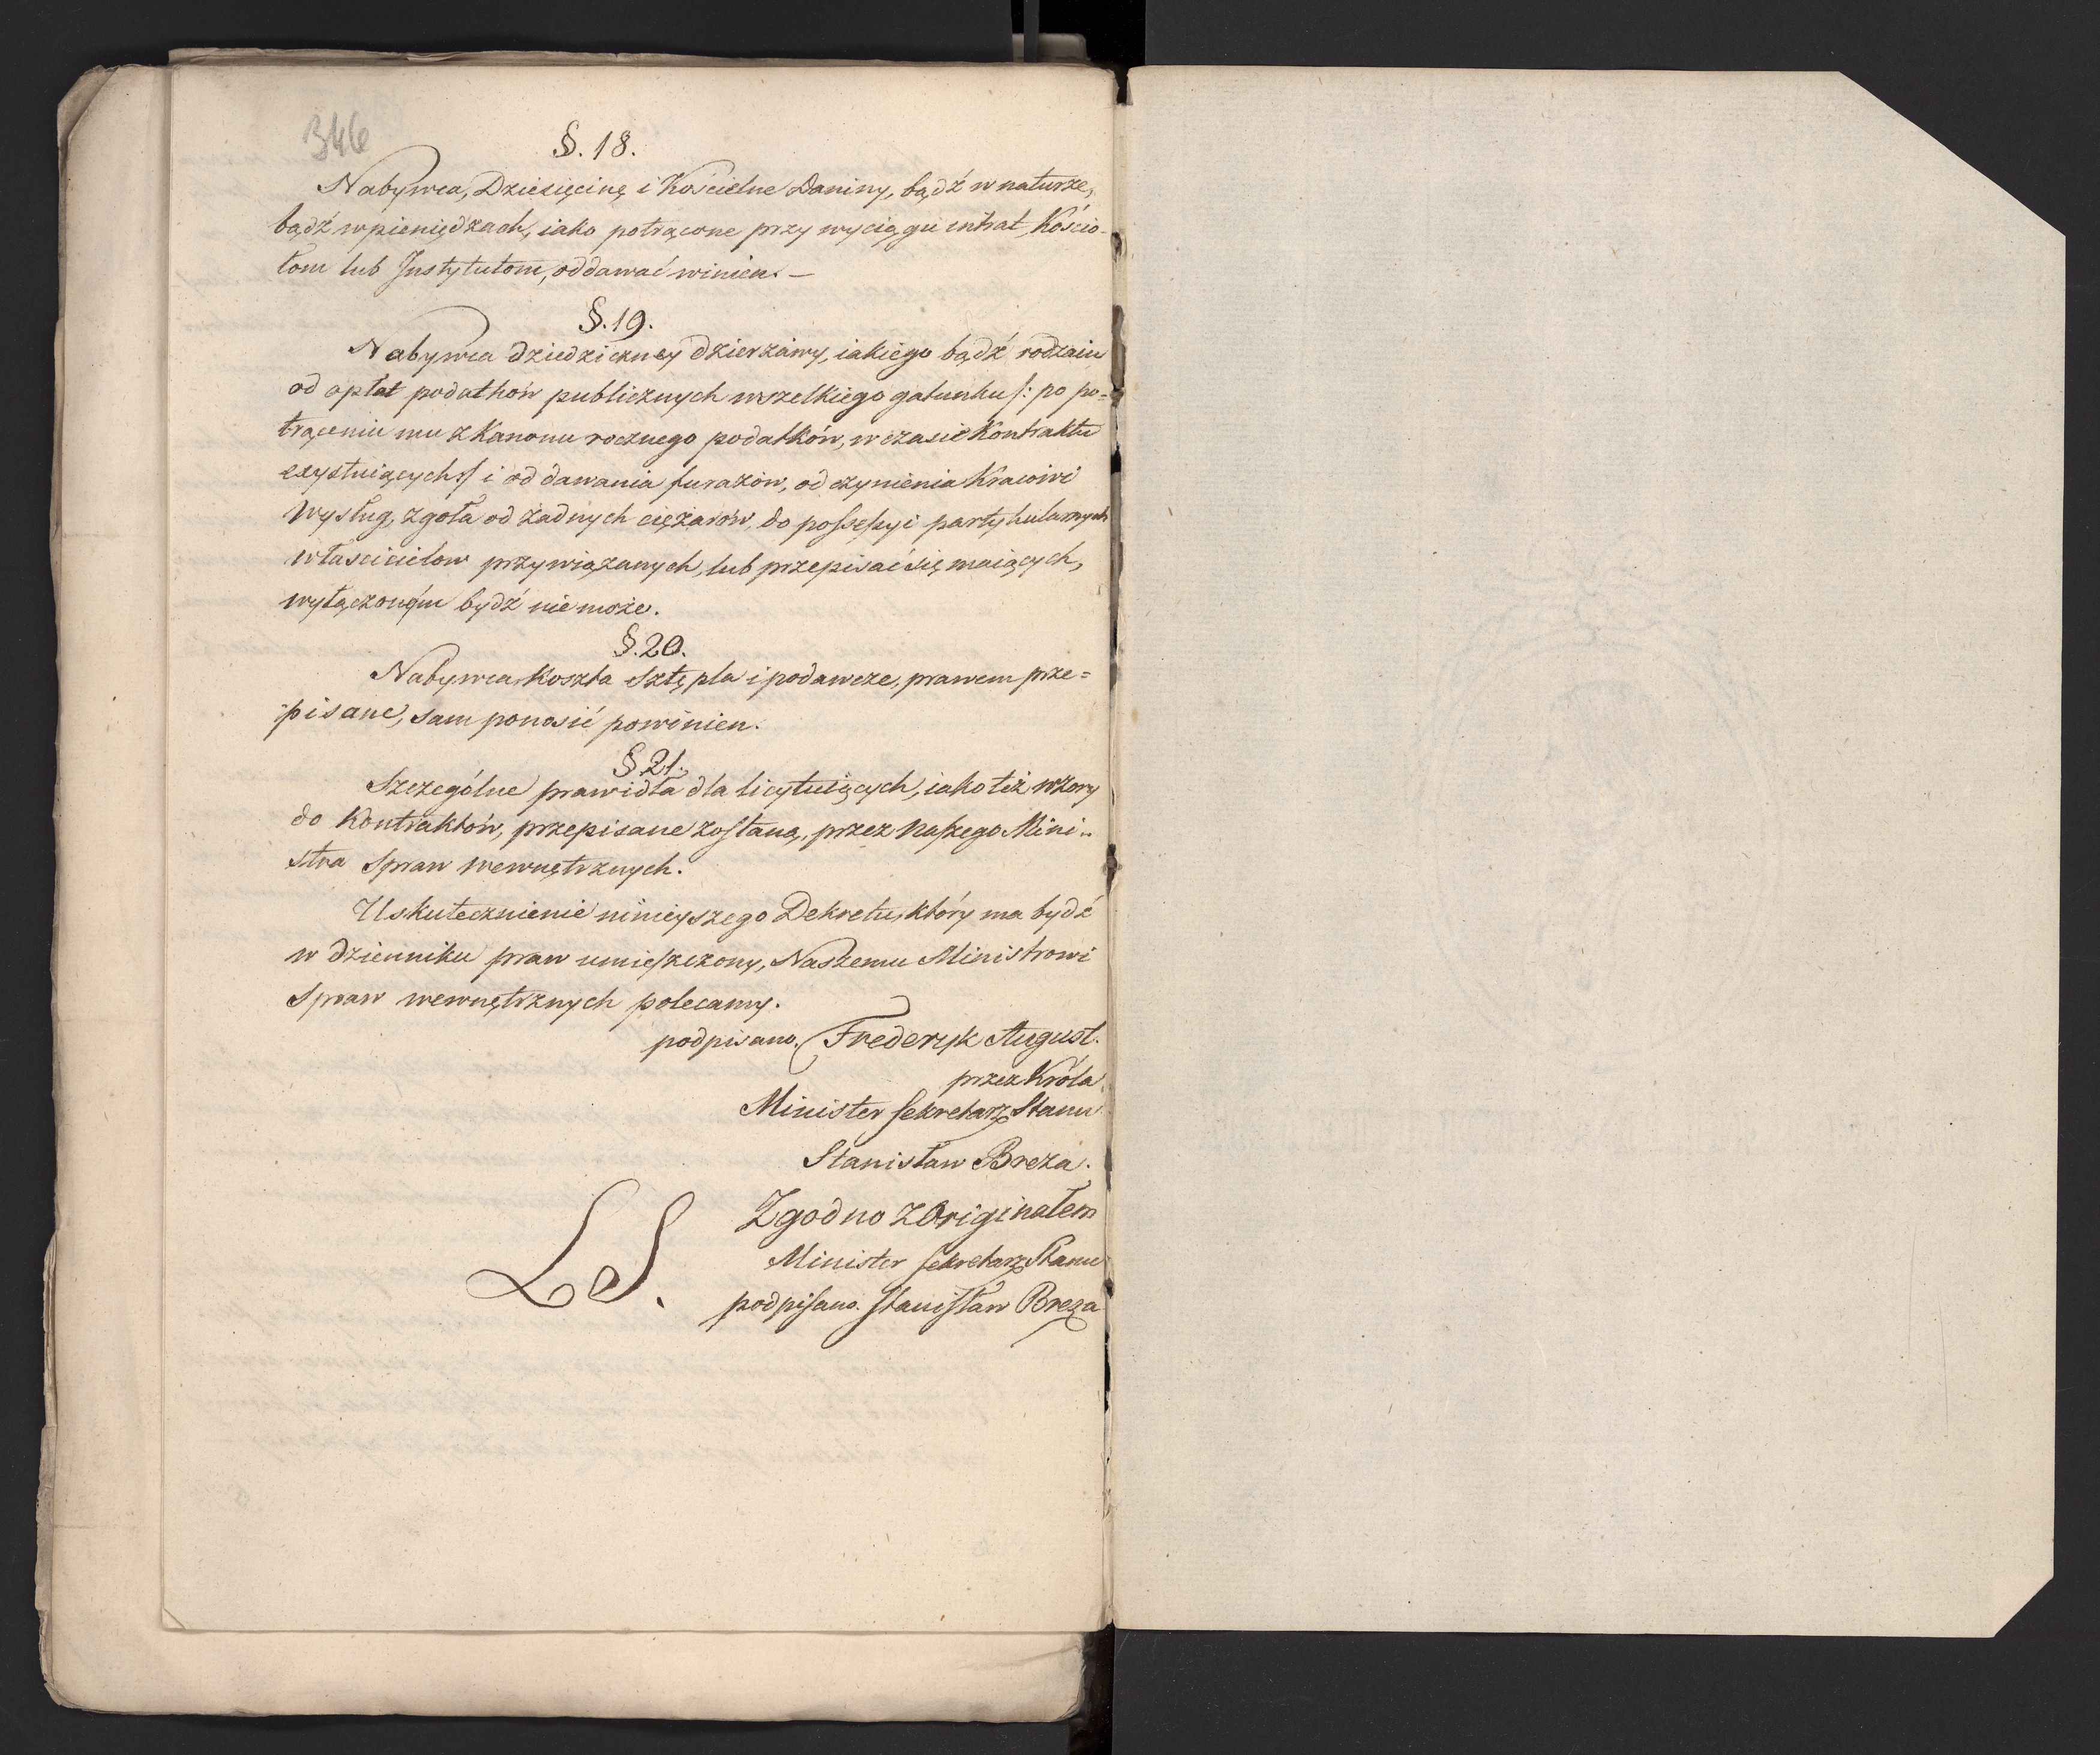 346
§. 18.
Nabywca, Dziesięcinę i Kościelne Daniny, bądź w naturze,
bądź w pieniędzach, iako potrącone przy wyciągu intrat, Kościo-
łom lub Instytutom, oddawać winien. –
§. 19.
Nabywca dziedziczney dzierżawy, iakiego bądź rodzaiu
od opłat podatków publicznych wszelkiego gatunku /: po po=
trąceniu mu z Kanonu rocznego podatków, w czasie Kontraktu
exystuiących :/ i od dawania furażów, od czynienia Kraiowi
Wysług, zgoła od żadnych ciężarów, do possessyi partykularnych
właścicielow przywiązanych, lub przepisać się maiących,
wyłączonym bydź nie może.
§. 20.
Nabywca Koszta Sztępla i podawcze, prawem prze=
pisane, sam ponosić powinien.
§ 21.
Szczególne prawidła dla licytuiących, iako też wzory
do Kontraktów, przepisane zostaną, przez Naszego Mini-
stra Spraw wewnętrznych.
Uskutecznienie ninieyszego Dekretu, który ma bydź
w dzienniku praw umieszczony, Naszemu Ministrowi
Spraw wewnętrznych polecamy.
podpisano. Frederyk August.
przez Króla
Minister Sekretarz Stanu
Stanisław Breza.
Zgodno z Originałem
Minister Sekretarz Stanu
LS. podpisano. Stanisław Breza